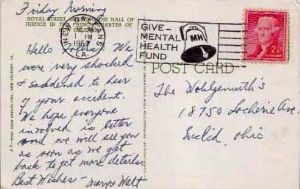 Friday Morning
ROYAL STREET
THE HALL OF
JUSTICE IN THE
QUARTER OF
NEW ORLEANS
PM
1967
LA
GIVE-
MENTAL
HEALTH
FUND
MH
2¢
POST CARD
Hello
We
were very shocked
& saddened to hear
of your accident.
We hope everyone
involved is better
and we will see you
as soon as we get
back to get more details
Best Wishes - Walt
The Wohlgemuth's
18750 Locherie Ave
Euclid, Ohio